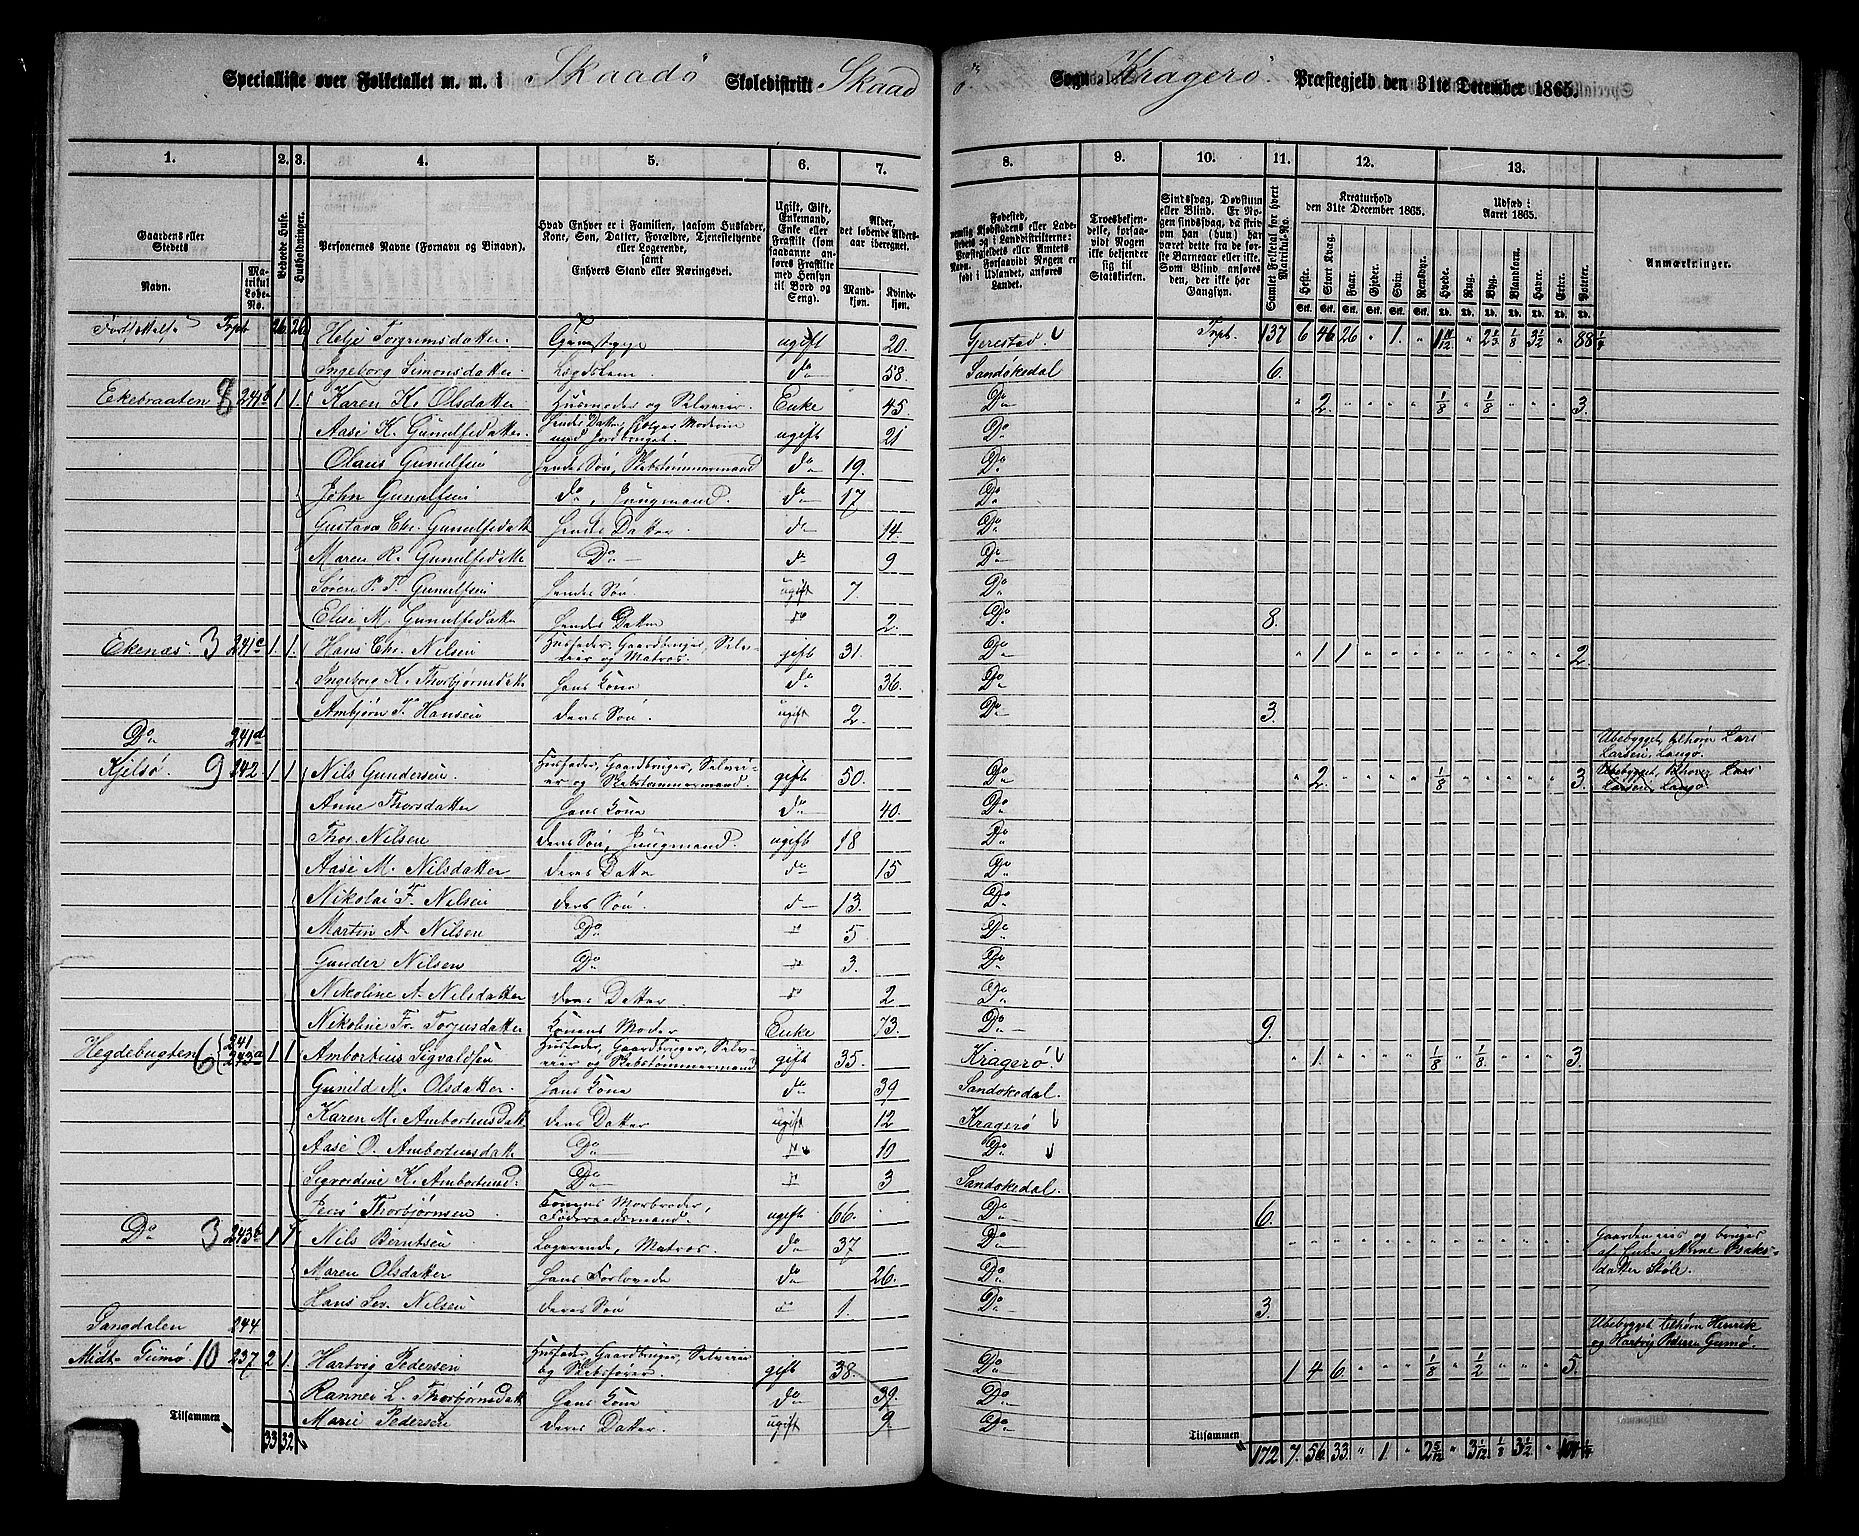 Specialliste over Folketallet m. m. i Skaadö Skoledistrikt Skaadö Sogn Kragerö Præstegjeld den 31te December 1865.
1. 2. 3. 4. 5. 6. 7. 8. 9. 10. 11. 12. 13.
Gaardens eller Stedets
Navn.
Matrikul Løbe-No.
Beboede Huse.
Husholdninger.
Personernes Navne (Fornavn og Binavn).
Hvad Enhver er i Familien, saasom Husfader, Kone, Søn, Datter, Forældre, Tjenestetyende eller Logerende, samt Enhvers Stand eller Næringsvei.
Ugift, Gift, Enkemand, Enke eller Fraskilt (som saadanne anføres Fraskilte med Hensyn til Bord og Seng).
Alder, det løbende Alders-aar iberegnet.
Mandkjøn.
Kvindekjøn.
Kreaturhold den 31te December 1865.
Udsæd i Aaret 1865.
Anmærkninger.
Helje Torgrimsdatter Tjenestepige ugift 20. Gjerestad Trpt. 137 6 46 26 " 1. "
Ingeborg Simonsdatter Lægdslem do 58. Sandökedal 6.
Ekebraaten 8 241b 1 1. Karen K. Olsdatter Husmoder og Selveier Enke 45 Do " 2. " " " " 1/8 " 1/8 " " " 3.
Aase K. Gunulfsdatter ugift 21 Do
Olaus Gunulfsen hendes Søn, Skibstømmermand do 19. Do
John Gunulfsen do, Jungmand. do 17 Do
Gustava Chr. Gunulfsdatt hendes Datter do 14. Do
Maren R. Gunulfsdatte Do do 9 Do
Søren P. T. Gunulfsen hendes Søn ugift 7. Do
Elise M. Gunulfsdatte hendes Datter do 2. Do 8.
Ekenæs 3 241c 1. 1. Hans Chr. Nilsen Husfader, Gaardbruger, Selveier og Matros. gift 31. Do " 1 1 " " " " " " " " " 2
Ingeborg K. Thorbjörnsdatt hans Kone do 36. Do
Ambjørn T. Hansen deres Søn. ugift 2. Do 3.
Do 241d Ubebygget, tilhører Lars Larsen, Langø.
Kjelsö. 9 242 1 1 Nils Gundersen. Husfader, Gaardbruger, Selveier og Skibstømmermand. gift 50. Do " 2. " " " " 1/8 " " " " " 3. Ubebygget, tilhører Lars Larsen, Langø.
Anne Thorsdatter hans Kone do 40. Do
Thor Nilsen deres Søn, Jungmand. ugift 18 Do
Aase M. Nilsdatter deres Datter do 15 Do
Nikolai F. Nilsen deres Søn. do 13. Do
Martin A. Nilsen Do do 5 Do
Gunder Nilsen Do do 3. Do
Nikoline A. Nilsdatter deres Datter do 2 Do
Nikoline Fr. Torjusdatter Konens Moder Enke 73. Do 9.
Hegdebugten 6 241 243a 1 1 Ambortius Sigvaldsen Husfader, Gaardbruger, Selveier og Skibstømmermand gift 35. Kragerö. " 1. " " " " 1/8 " 1/8. " " " 3.
Gunild M. Olsdatter. hans Kone do 39 Sandökedal.
Karen M. Ambortiusdatt. deres Datter ugift 12 Kragerö
Aase O. Ambortiusdatt Do do 10 Do
Sigvardine K. Ambortiusd. Do do 3 Sandökedal.
Jens Thorbjörnsen Konens Morbroder, Føderaadsmand. ugift 66. Do 6.
Do 3 243b 1 1 Nils Berntsen Logerende, Matros. do 37 Do Gaarden eies og bruges af Enke Anne Isaksdatter Støle.
Maren Olsdatter hans Forlovede do 26. Do
Hans Sev. Nilsen deres Søn do 1. Do 3.
Langdalen 244 Ubebygget, tilhører Henrik og Hartvig Peters. Gumø.
Midt-Gumö 10 237 2 1. Hartvig Pedersen Husfader, Gaardbruger, Selveier og Skibsfører. gift 38. Do 1 4 6 " " " 1/8 " 1/2 " " " 5.
Ranner L. Thorbjørnsdatt hans Kone do 39. Do
Marie Pedersen deres Datter ugift 9 Do
Tilsammen 33 32 Tilsammen 172 7. 56 33. " 1. " 2 5/12 " 3 1/12 1/8 3 1/2 "